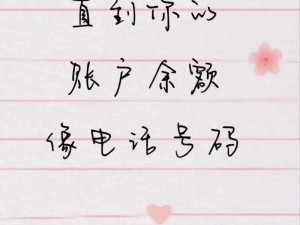 直到你的
账户余额
像电话号码